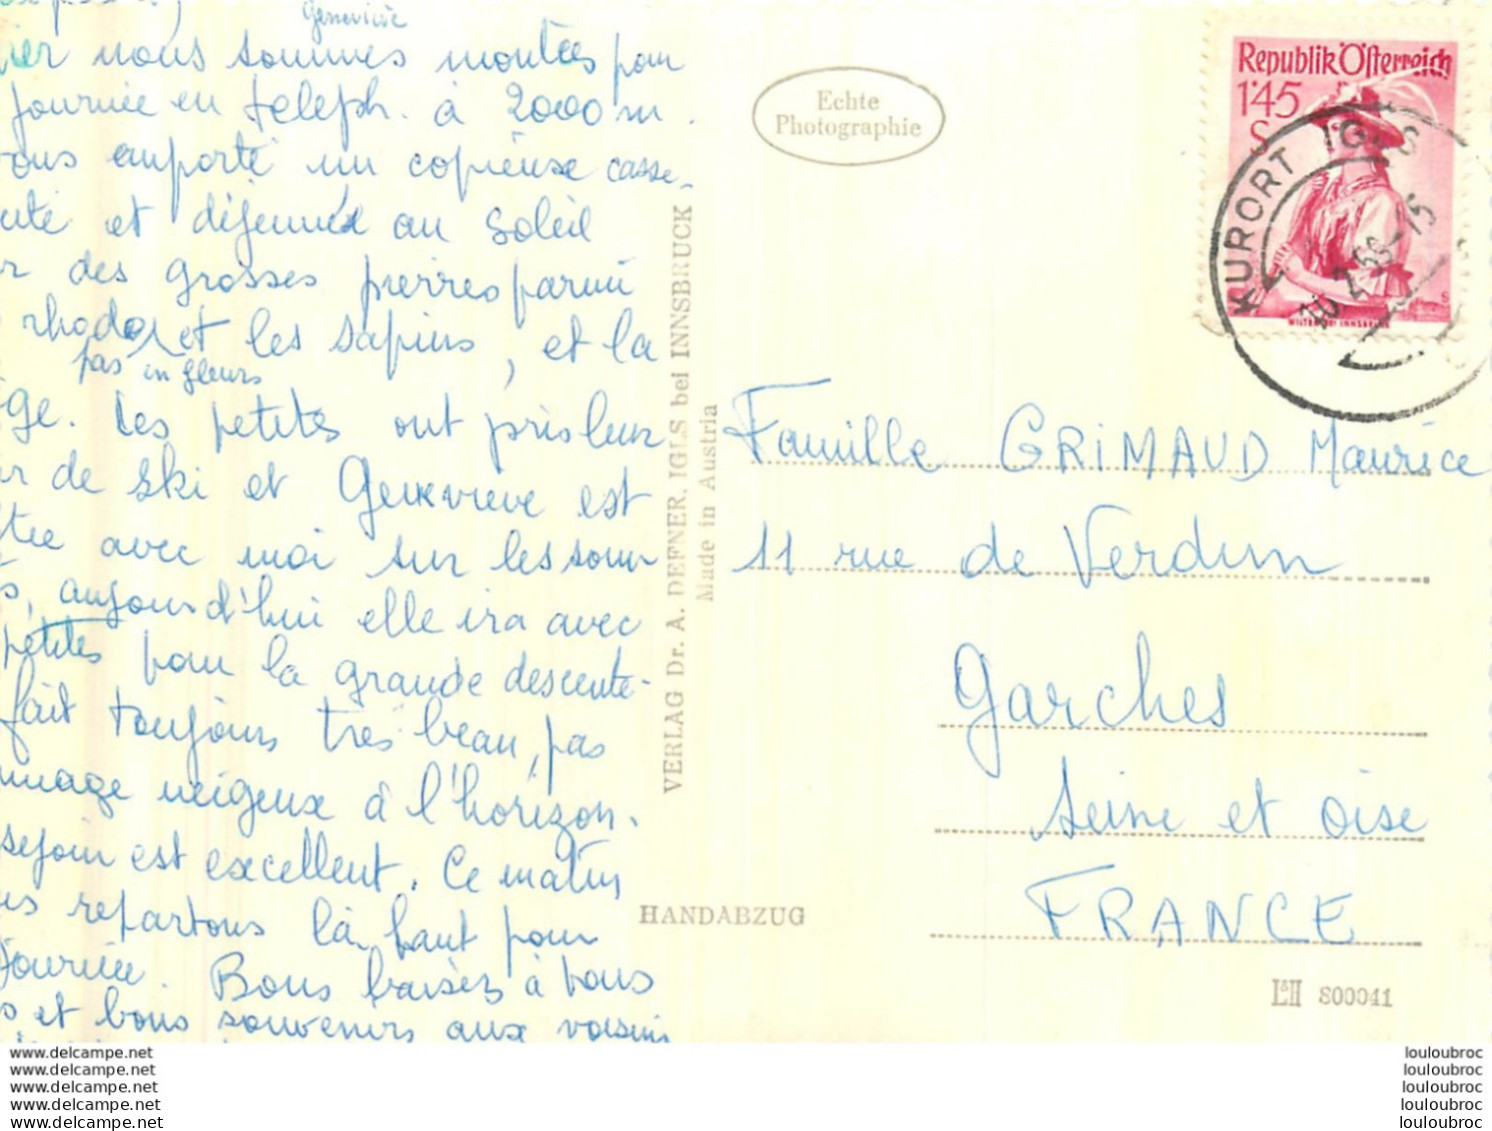 Geneviève
nous sommes montées pour
journée en teleph. à 2000 m.
emporté un copieuse casse-
et déjeuné au soleil
des grosses pierres parmi
rhodos et les sapins, et la
pas en fleurs
Les petites ont pris leur
de ski et Geneviève est
avec moi sur les som
aujourd'hui elle ira avec
petites pour la grande descente.
fait toujours très beau, pas
nuage neigeux à l'horizon.
sejour est excellent. Ce matin
repartons là haut pour
journée. Bons baisers à tous
et bons souvenirs aux voisins
Echte
Photographie
VERLAG Dr. A. DEFNER, IGLS bei INNSBRUCK
Made in Austria
HANDABZUG
Republik Österreich
1'45
S
KURORT IGLS
Famille GRIMAUD Maurice
11 rue de Verdun
Garches
Seine et Oise
FRANCE
S00041
www.delcampe.net
www.delcampe.net
www.delcampe.net
www.delcampe.net
www.delcampe.net
louloubroc
louloubroc
louloubroc
louloubroc
louloubroc